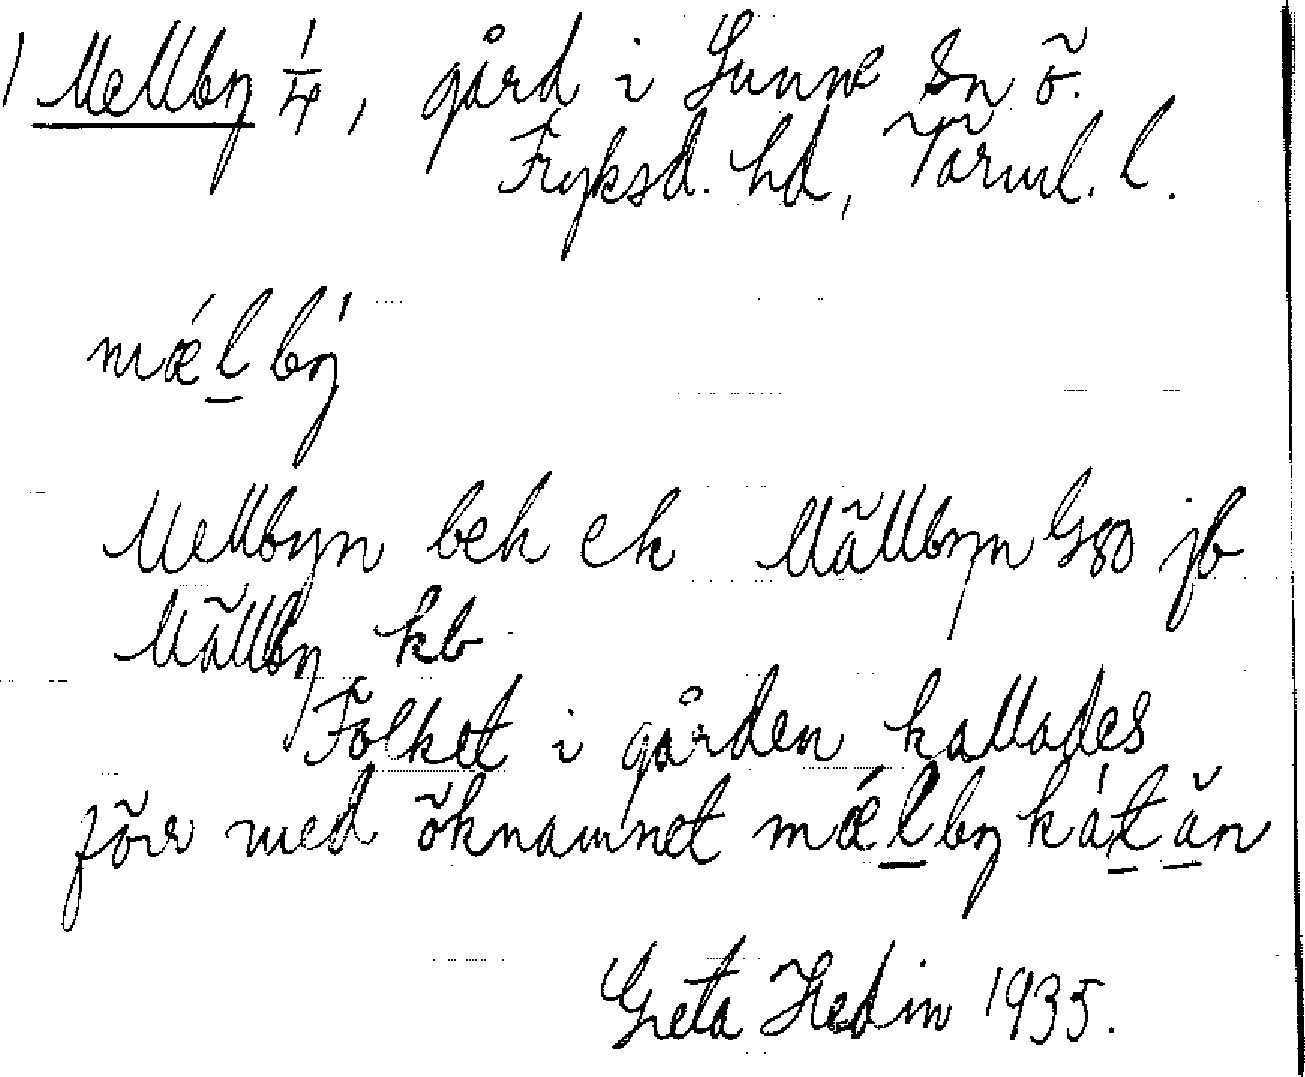 1 Mellby 1/4, gård i Sunne sn Ö.
Fryksd. hd, Värml. l.
mǽl̲ bý
Mellbyn bek ek Mällbyn G80 jb
Mällby kb
Folket i gården kallades
förr med öknamnet mǽl̲bykát̲ä̲n
Greta Hedin 1935.